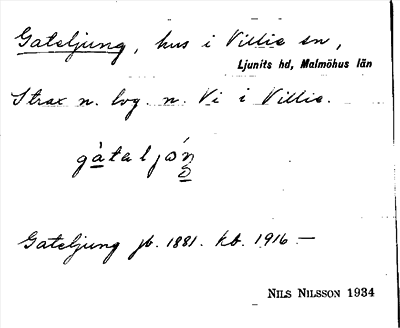 Gateljung, hus i Villie sn,
Ljunits hd, Malmöhus län
Strax n. lvg. n. Vi i Villie.
gàtaljón
Gateljung jb. 1881. kb. 1916 —
NILS NILSSON 1934